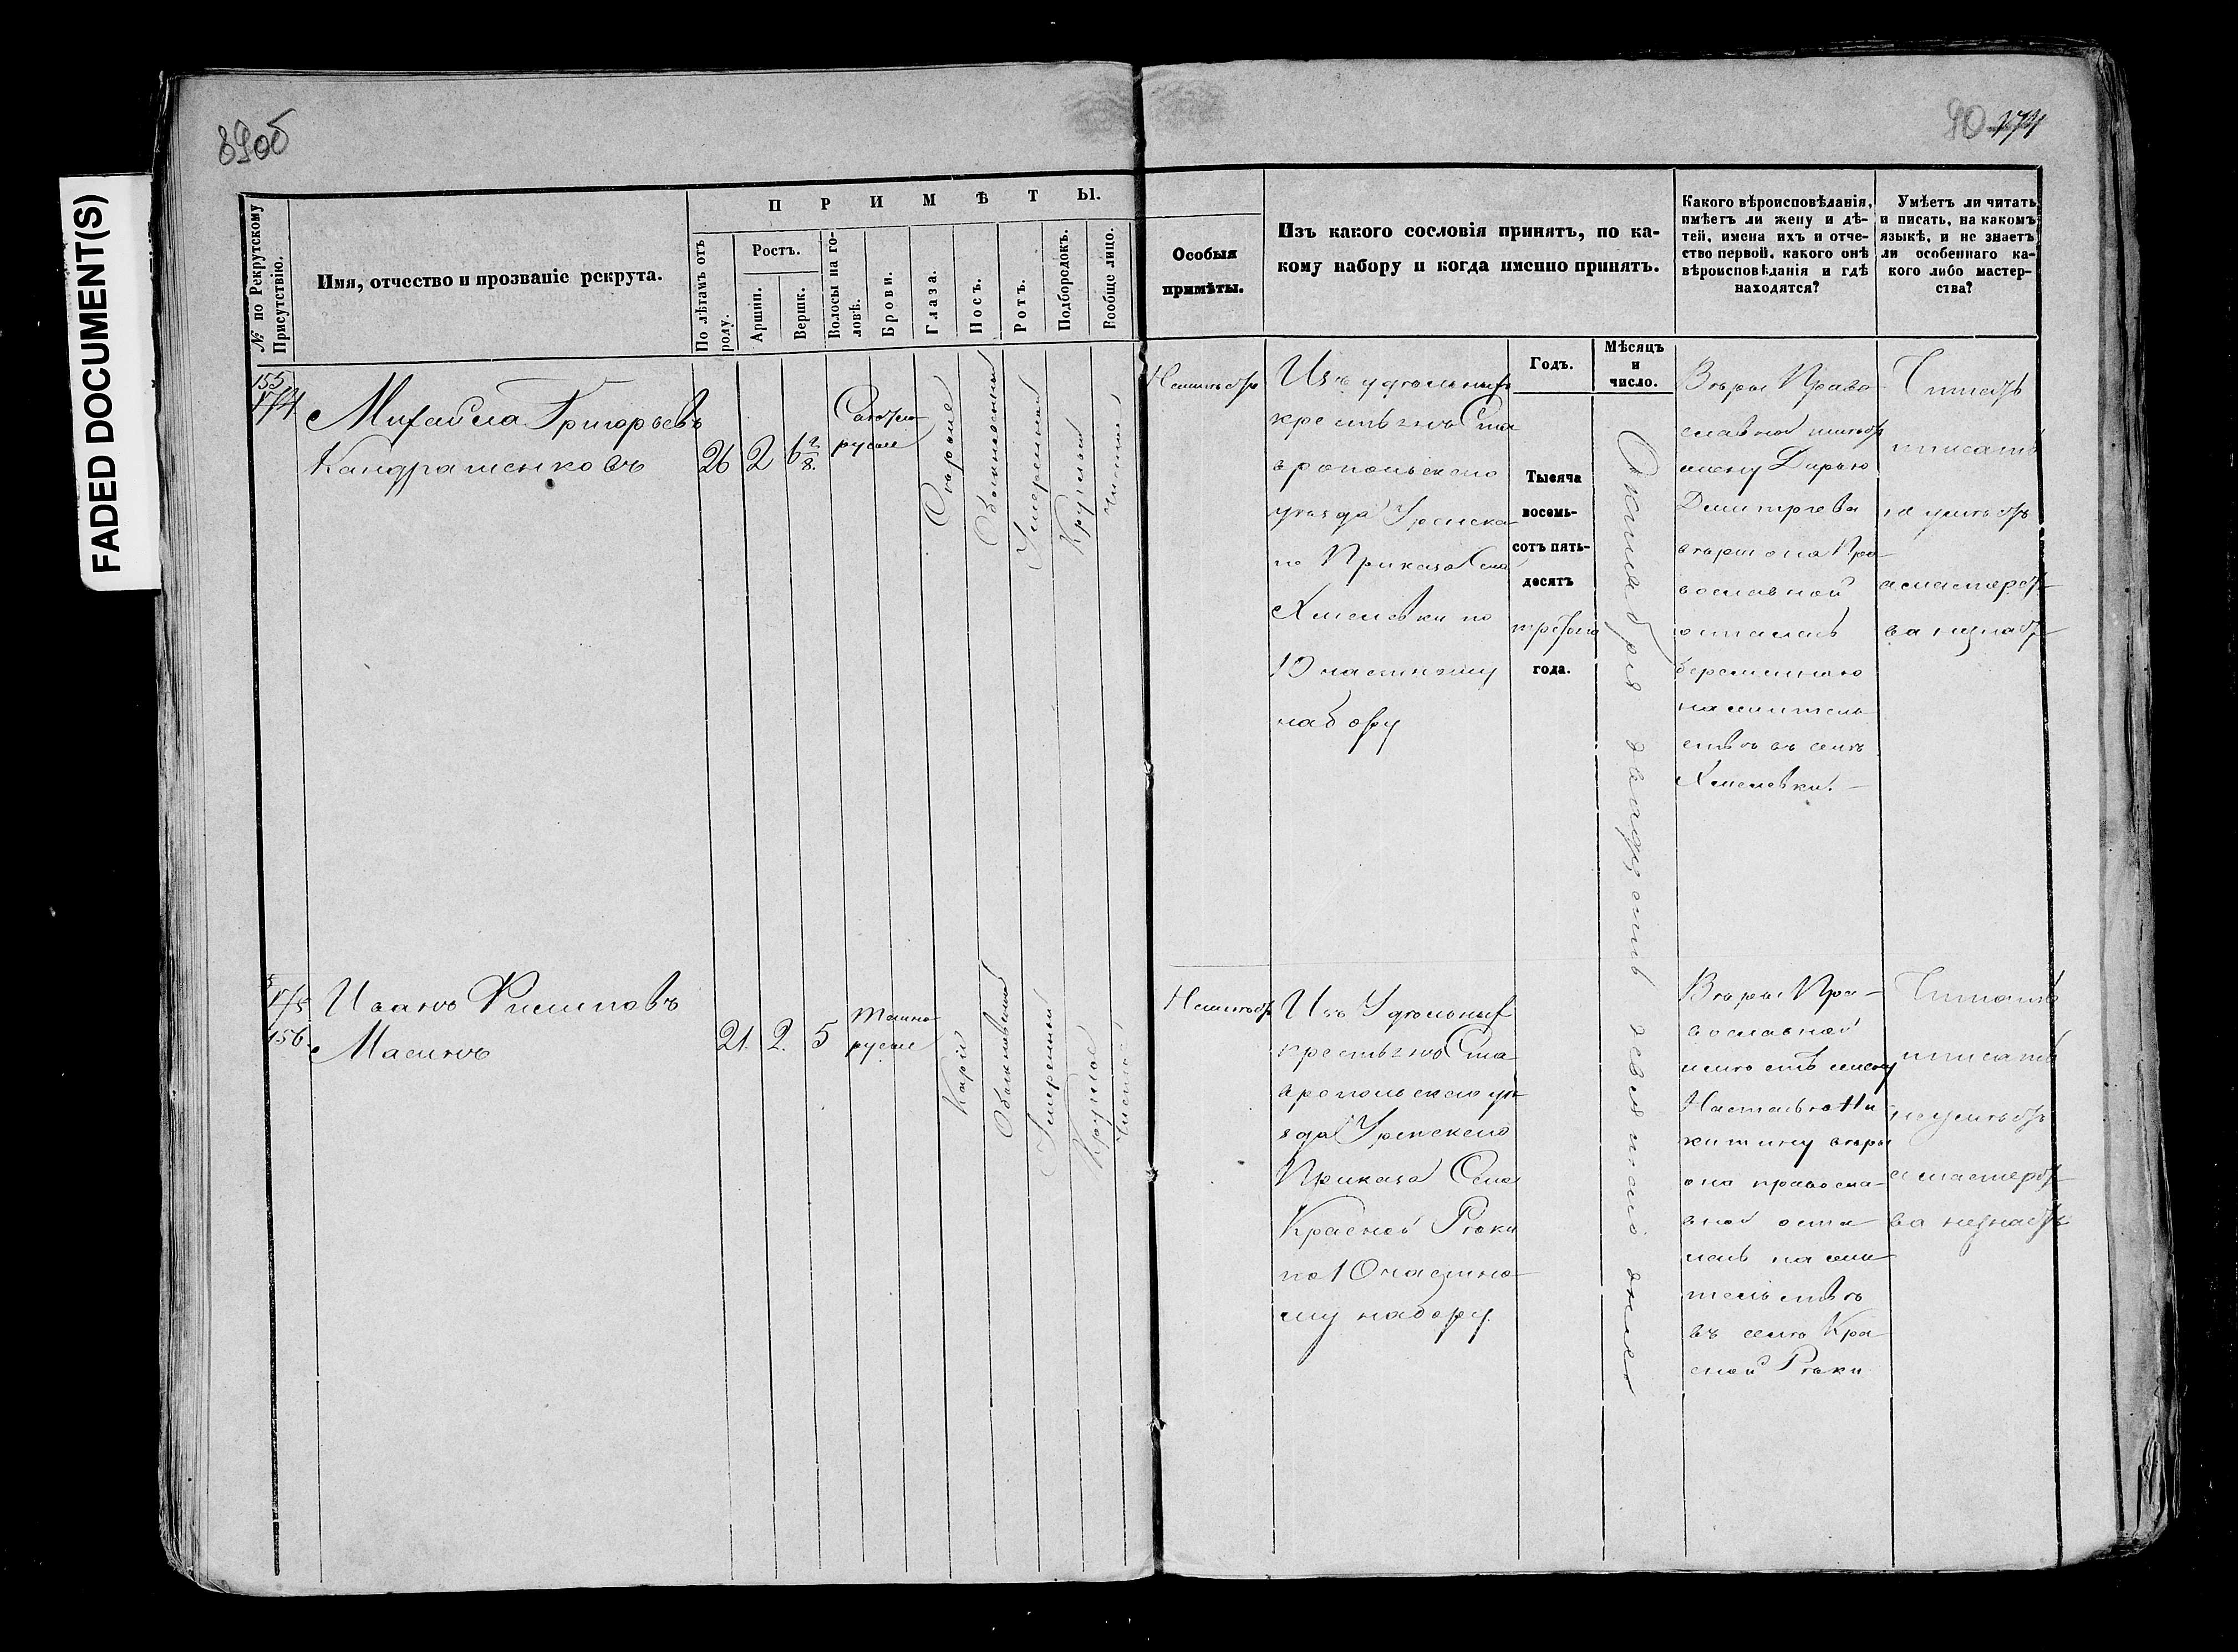 FADED DOCUMENT(S)
89об
90 174
№ по Рекрутскому Присутствію.
Имя, отчество и прозваніе рекрута.
ПРИМѢТЫ.
По лѣтамъ отъ роду.
Ростъ.
Аршин.
Вершк.
Волосы на головѣ.
Брови.
Глаза.
Носъ.
Ротъ.
Подбородокъ.
Вообще лицо.
Особыя
примѣты.
Изъ какого сословія принятъ, по ка-
кому набору и когда именно принятъ.
Какого вѣроисповѣданія,
имѣетъ ли жену и дѣ-
тей, имена ихъ и отче-
ство первой, какого онѣ
вѣроисповѣданія и гдѣ
находятся?
Умѣетъ ли читать
и писать, на какомъ
языкѣ, и не знаетъ
ли особеннаго ка-
кого либо мастер-
ства?
Годъ.
Мѣсяцъ
и
число.
155
174
Михайла Григорьевъ
Кандрашенковъ
26
2
6 2/8.
Свѣтло
русые
Сѣрые
Обыкновенный
Умеренный
Круглый
Чистое
Неимѣетъ
Изъ удѣльныхъ
крестьянъ Ста
вропольскаго
уѣзда Уренска
го Приказа Села
Хмелевки по
10 частному
набору
Тысяча
восемь-
сотъ пять-
десятъ
третьяго
года.
Октября двадцать девятаго дня
Вѣры Право
славной имѣетъ
жену Дарью
Дмитріева
вѣры она Пра-
вославной
осталась
беременною
на житель
ствѣ въ селѣ
Хмелевки. -
Читать
и писать
не умѣетъ
а мастерст-
ва незнаетъ
175
156.
Иванъ Филиповъ
Масинъ
21.
2.
5
темно
русые
Каріе
Обыкновенный
Умеренный
Круглой
Чистое
Неимѣетъ
Изъ Удѣльныхъ
крестьянъ Ста
вропольскаго уѣ
зда Уренскаго
Приказа Села
Красной Рѣки
по 10 частно-
му набору
Вѣры Пра-
вославной
имѣетъ жену
Настасью Ни
китину вѣры
она правосла-
вной оста
лась на жи
тельствѣ
въ селѣ Кра
сной Рѣки
Читать
и писать
неумѣетъ
а мастерст-
ва незнаетъ